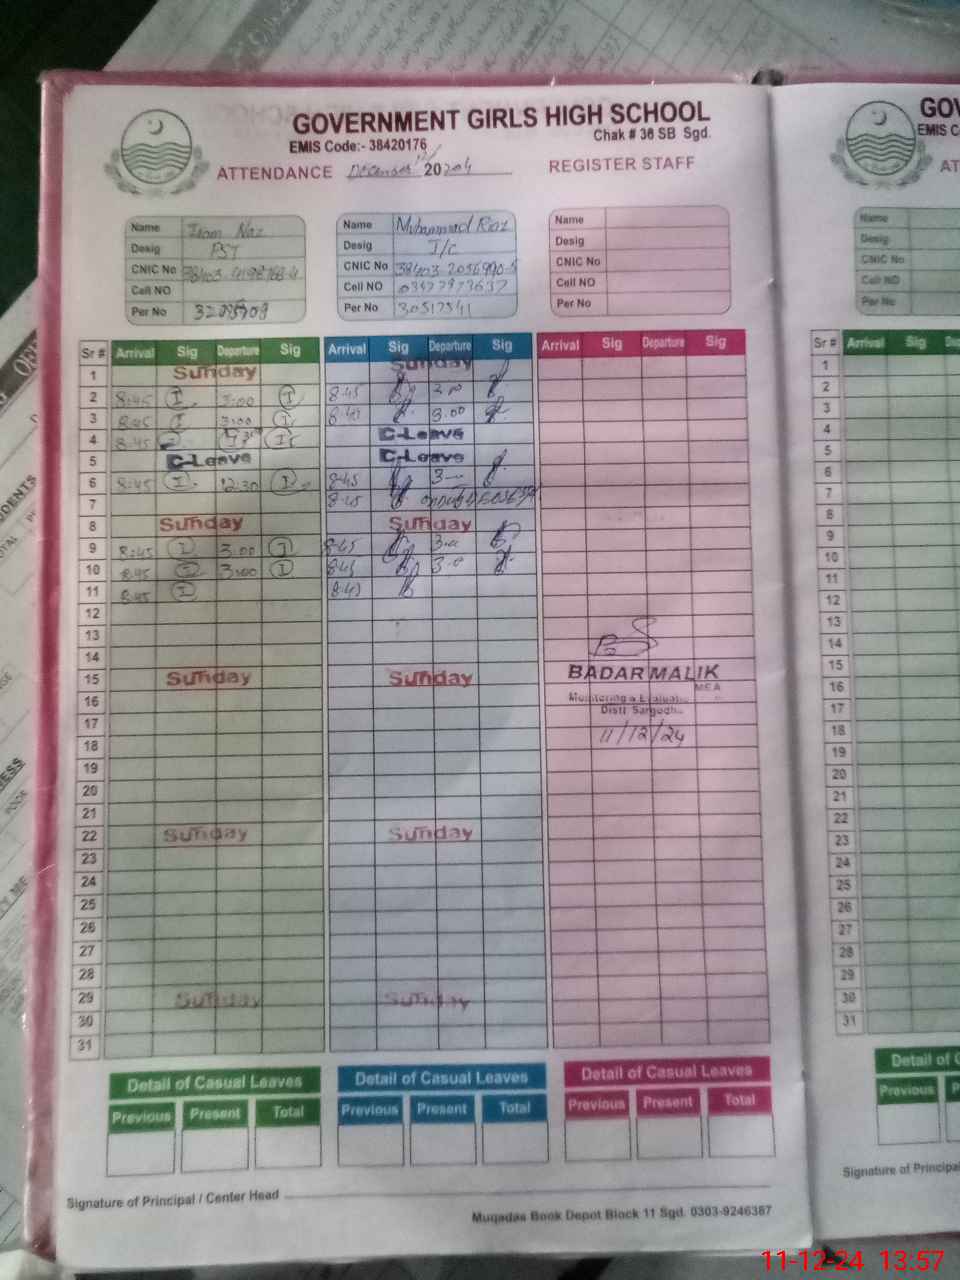 GOVERNMENT GIRLS HIGH SCHOOL
Chak # 36 SB Sgd.
EMIS Code:- 38420176
ATTENDANCE December 12/ 20 2024 REGISTER STAFF
Name Iram Naz
Desig PST
CNIC No
Cell NO
Per No
Name Muhammad Riaz
Desig I/C
CNIC No 38403-2056990-5
Cell NO
Per No 30517341
Name
Desig
CNIC No
Cell NO
Per No
Sr # Arrival Sig Departure Sig Arrival Sig Departure Sig Arrival Sig Departure Sig
1 Sunday Sunday
2 8:45 I 3:00 I 8:45 3.00
3 8:45 I 3:00 I 8:45 3.00
4 8:45 C-Leave
5 C-Leave C-Leave
6 8:45 I 12:30 I 8:45 3-
7 8:45
8 Sunday Sunday
9 8:45 I 3:00 I 8:45 3.00
10 8:45 I 3:00 I 8:45 3.0
11 8:45 I 8:45
12
13
14
15 Sunday Sunday
BADAR MALIK
MEA
16
Monitoring & Evaluati
Distt Sargodh
17
11/12/24
18
19
20
21
22 Sunday Sunday
23
24
25
26
27
28
29 Sunday Sunday
30
31
Detail of Casual Leaves Detail of Casual Leaves Detail of Casual Leaves
Previous Present Total Previous Present Total Previous Present Total
Signature of Principal / Center Head
Muqadas Book Depot Block 11 Sgd. 0303-9246387
GOV
EMIS C
AT
Name
Desig
CNIC No
Cell NO
Per No
Sr # Arrival Sig
1
2
3
4
5
6
7
8
9
10
11
12
13
14
15
16
17
18
19
20
21
22
23
24
25
26
27
28
29
30
31
Detail of C
Previous P
Signature of Principa
11-12-24 13:57